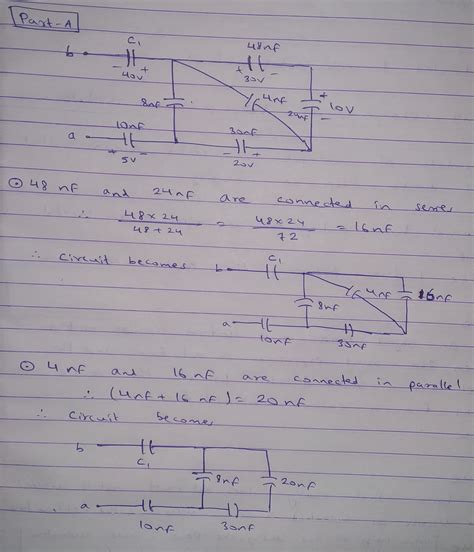 Part-A
C₁ 48nf
b
- 40V + + 30V -
8nf 4nf + 10V -
24nf
10nf 30nf
a
+ 5V - - 20V +
⊙ 48 nf and 24nf are connected in series
∴ 48×24 / 48+24 = 48×24 / 72 = 16nf
∴ circuit becomes b C₁
4nf 16nf
8nf
a 10nf 30nf
⊙ 4nf and 16nf are connected in parallel
∴ (4nf + 16 nf) = 20nf
∴ circuit becomes
b C₁
8nf 20nf
a
10nf 30nf